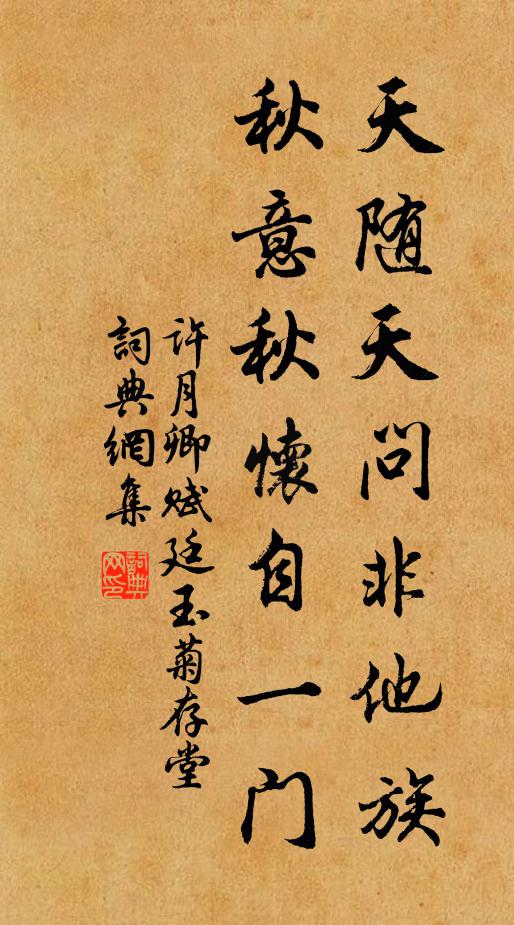 天随天问非他族
秋意秋懷自一門
许月卿赋廷玉菊存堂
詞典網集
詞典网印